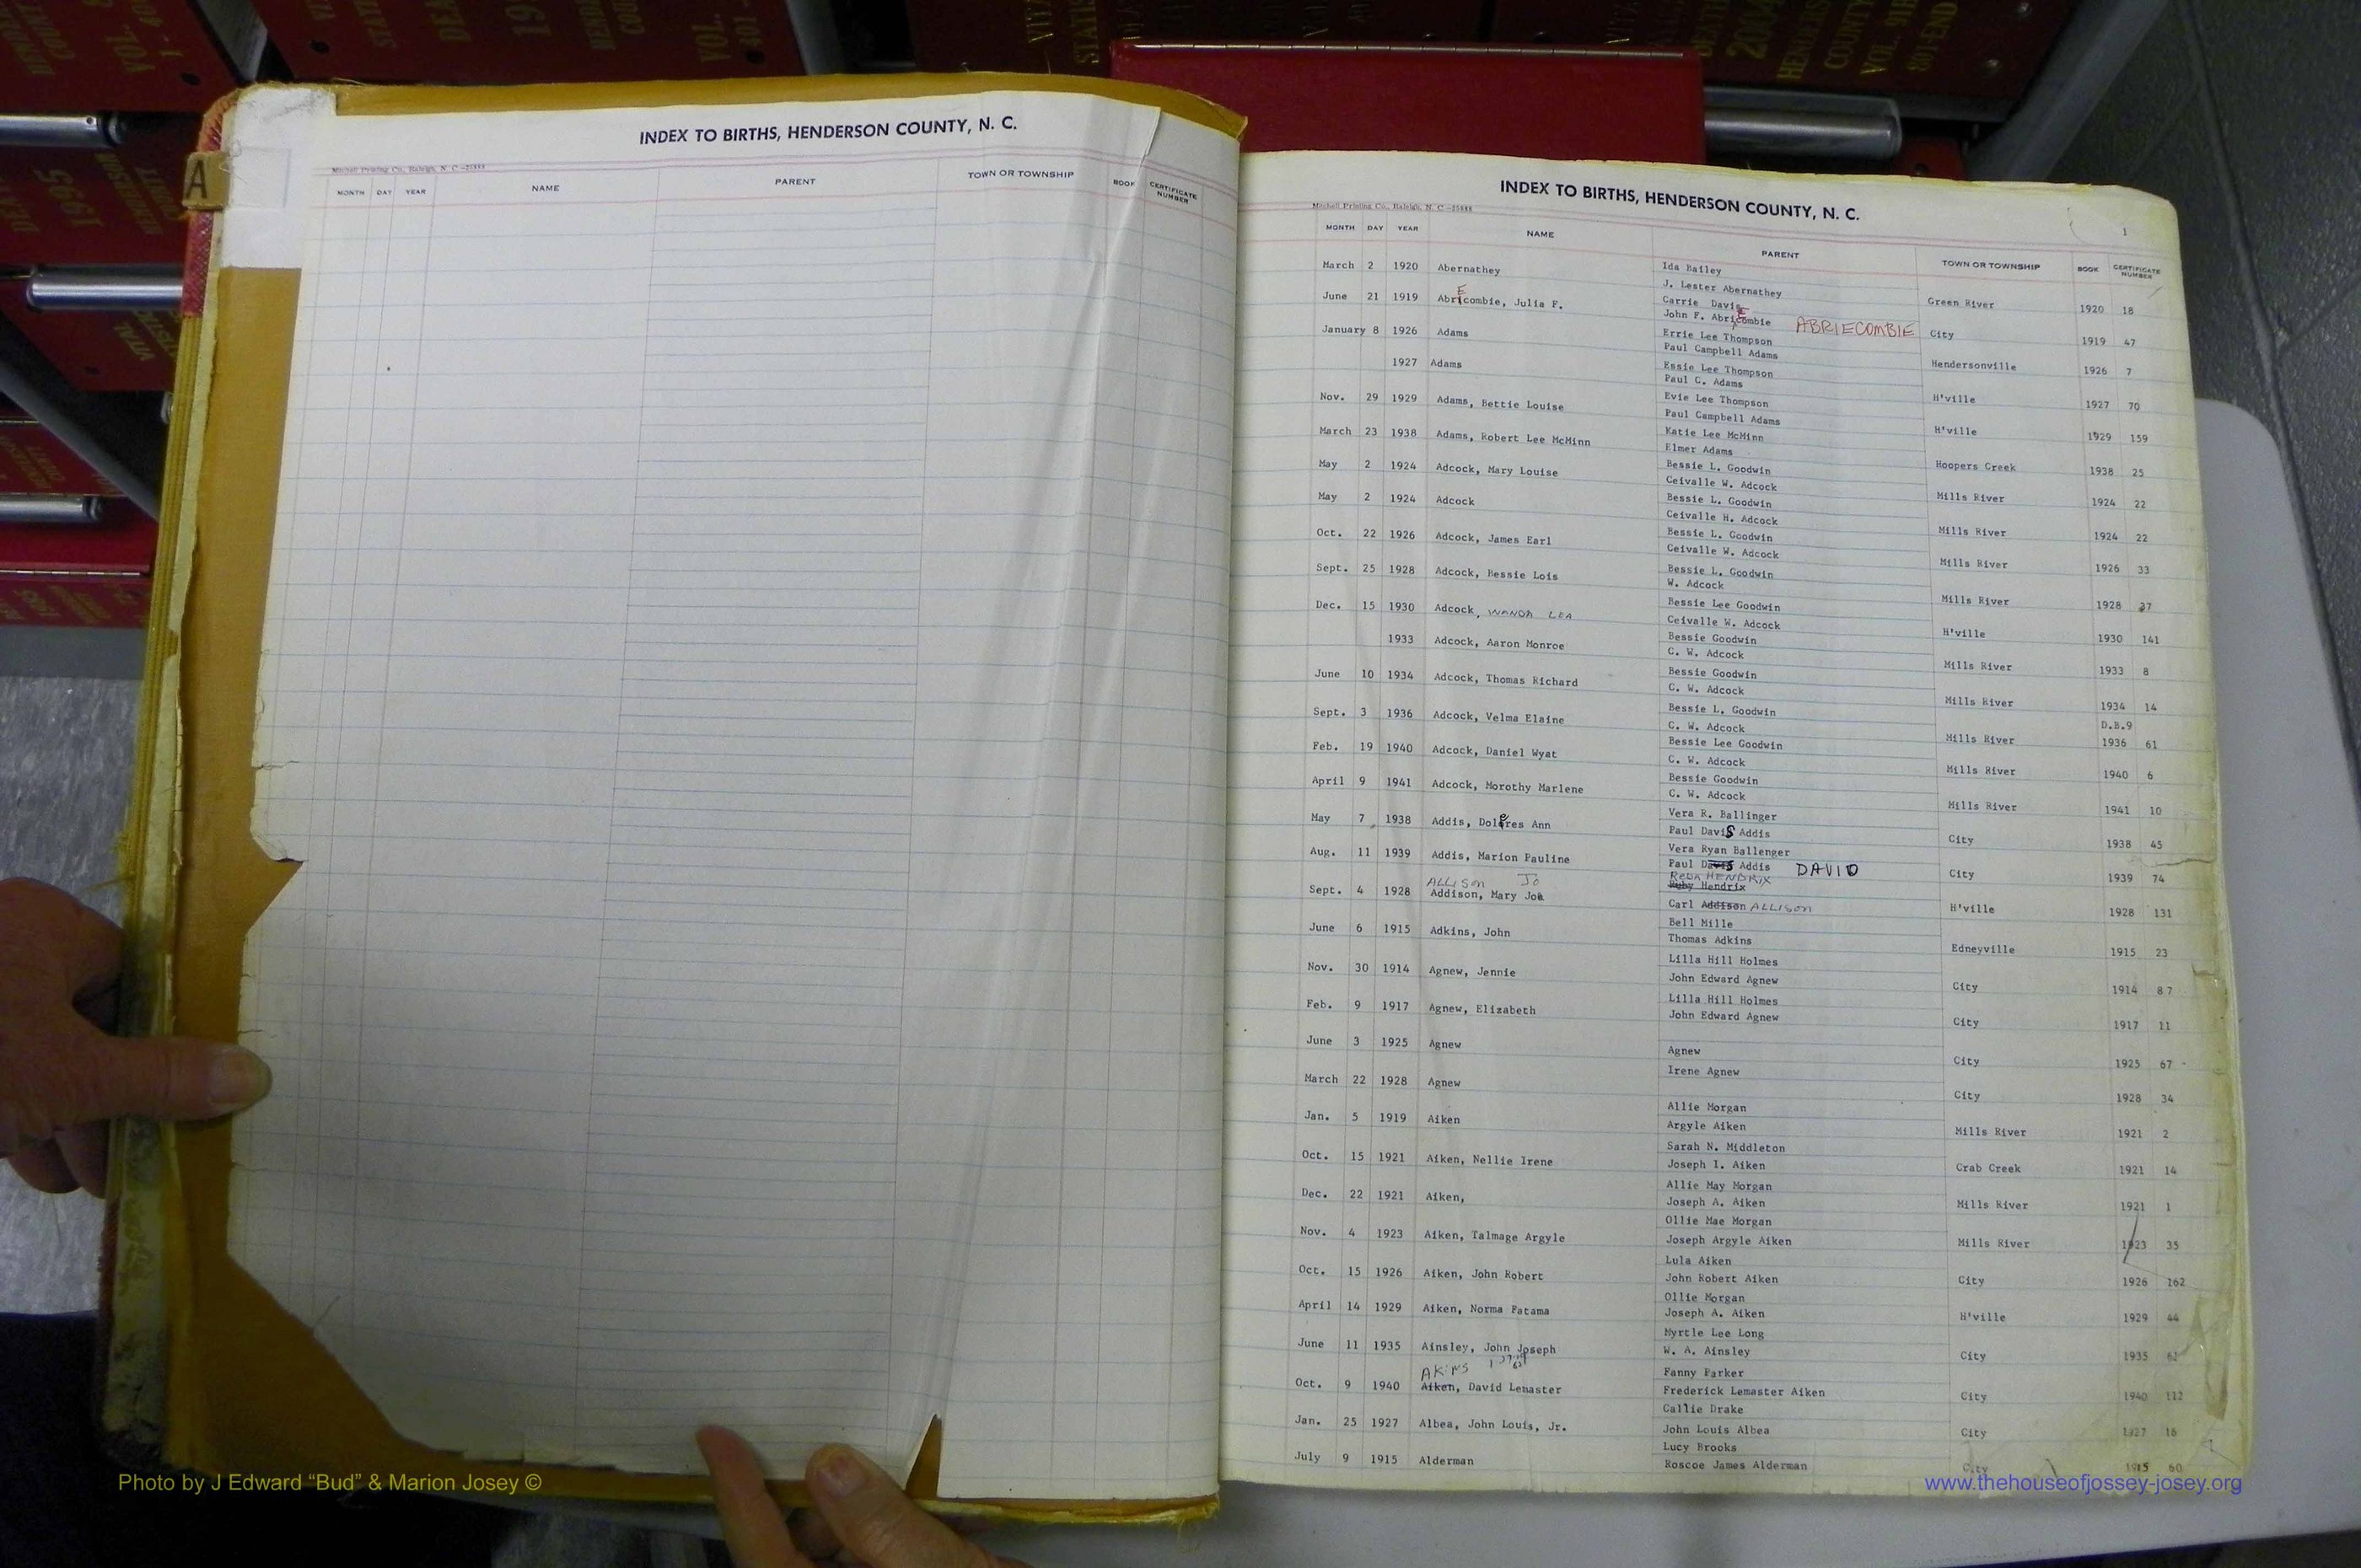 VOL. 4
1995
1995
VITAL
2004
HENDERSON
COUNTY
VOL. 91B
801-END
A
INDEX TO BIRTHS, HENDERSON COUNTY, N. C.
Mitchell Printing Co., Raleigh, N. C.—25888
MONTH DAY YEAR NAME PARENT TOWN OR TOWNSHIP BOOK CERTIFICATE NUMBER
INDEX TO BIRTHS, HENDERSON COUNTY, N. C.
1
Mitchell Printing Co., Raleigh, N. C.—25888
MONTH DAY YEAR NAME PARENT TOWN OR TOWNSHIP BOOK CERTIFICATE NUMBER
March 2 1920 Abernathey Ida Bailey
J. Lester Abernathey Green River 1920 18
June 21 1919 Abricombie, Julia F. E Carrie Davis
John F. Abricombie E ABRIECOMBIE City 1919 47
January 8 1926 Adams Errie Lee Thompson
Paul Campbell Adams Hendersonville 1926 7
1927 Adams Essie Lee Thompson
Paul C. Adams H'ville 1927 70
Nov. 29 1929 Adams, Bettie Louise Evie Lee Thompson
Paul Campbell Adams H'ville 1929 159
March 23 1938 Adams, Robert Lee McMinn Katie Lee McMinn
Elmer Adams Hoopers Creek 1938 25
May 2 1924 Adcock, Mary Louise Bessie L. Goodwin
Ceivalle W. Adcock Mills River 1924 22
May 2 1924 Adcock Bessie L. Goodwin
Ceivalle H. Adcock Mills River 1924 22
Oct. 22 1926 Adcock, James Earl Bessie L. Goodwin
Ceivalle W. Adcock Mills River 1926 33
Sept. 25 1928 Adcock, Bessie Lois Bessie L. Goodwin
W. Adcock Mills River 1928 37
Dec. 15 1930 Adcock, WANDA LEA Bessie Lee Goodwin
Ceivalle W. Adcock H'ville 1930 141
1933 Adcock, Aaron Monroe Bessie Goodwin
C. W. Adcock Mills River 1933 8
June 10 1934 Adcock, Thomas Richard Bessie Goodwin
C. W. Adcock Mills River 1934 14
Sept. 3 1936 Adcock, Velma Elaine Bessie L. Goodwin D.B.9
C. W. Adcock Mills River 1936 61
Feb. 19 1940 Adcock, Daniel Wyat Bessie Lee Goodwin
C. W. Adcock Mills River 1940 6
April 9 1941 Adcock, Morothy Marlene Bessie Goodwin
C. W. Adcock Mills River 1941 10
May 7 1938 Addis, Dolores Ann Vera R. Ballinger
Paul Davis Addis City 1938 45
Aug. 11 1939 Addis, Marion Pauline Vera Ryan Ballenger
Paul Davis Addis DAVID City 1939 74
ALLISON JO HENDRIX
Sept. 4 1928 Addison, Mary Ruby Hendrix
Carl Addison ALLISON H'ville 1928 131
June 6 1915 Adkins, John Bell Mille
Thomas Adkins Edneyville 1915 23
Nov. 30 1914 Agnew, Jennie Lilla Hill Holmes
John Edward Agnew City 1914 87
Feb. 9 1917 Agnew, Elizabeth Lilla Hill Holmes
John Edward Agnew City 1917 11
June 3 1925 Agnew
Agnew City 1925 67
March 22 1928 Agnew Irene Agnew
City 1928 34
Jan. 5 1919 Aiken Allie Morgan
Argyle Aiken Mills River 1921 2
Oct. 15 1921 Aiken, Nellie Irene Sarah N. Middleton
Joseph I. Aiken Crab Creek 1921 14
Dec. 22 1921 Aiken, Allie May Morgan
Joseph A. Aiken Mills River 1921 1
Nov. 4 1923 Aiken, Talmage Argyle Ollie Mae Morgan
Joseph Argyle Aiken Mills River 1923 35
Oct. 15 1926 Aiken, John Robert Lula Aiken
John Robert Aiken City 1926 162
April 14 1929 Aiken, Norma Fatama Ollie Morgan
Joseph A. Aiken H'ville 1929 44
June 11 1935 Ainsley, John Joseph Myrtle Lee Long
W. A. Ainsley City 1935
AKINS
Oct. 9 1940 Aiken, David Lemaster Fanny Parker
Frederick Lemaster Aiken City 1940 112
Jan. 25 1927 Albea, John Louis, Jr. Callie Drake
John Louis Albea City 1927 16
July 9 1915 Alderman Lucy Brooks
Roscoe James Alderman City 1915 60
Photo by J Edward “Bud” & Marion Josey ©
www.thehouseofjossey-josey.org